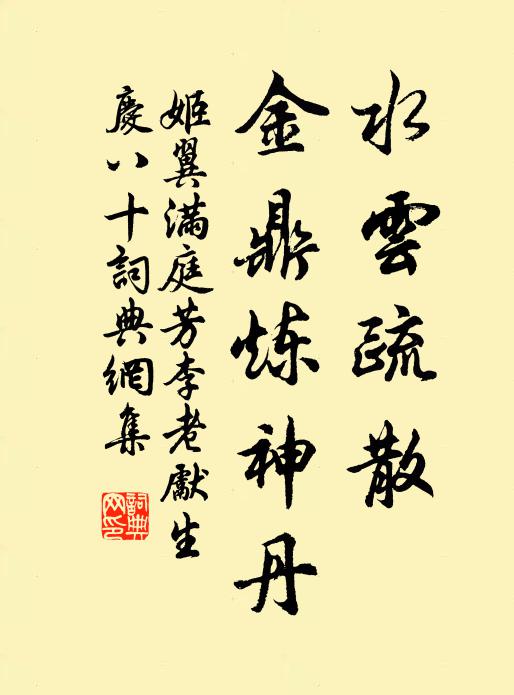 水雲疏散
金鼎炼神丹
姬翼滿庭芳李老獻生
慶八十詞典網集
詞典網印